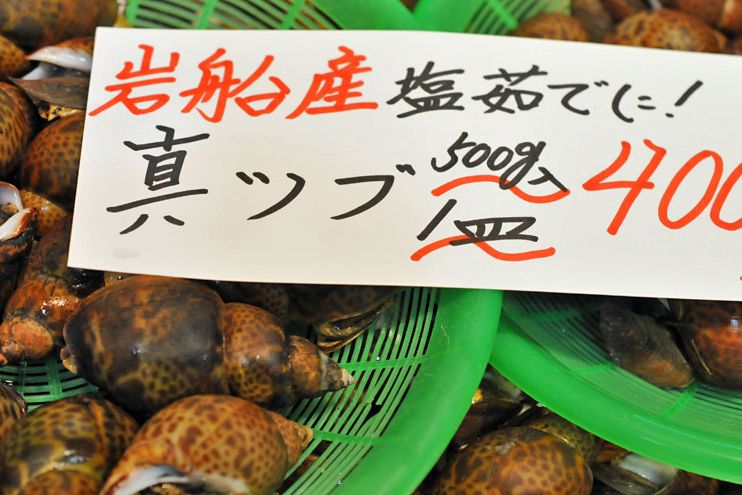 岩船産 塩茹でに!
真ツブ 500g入 1皿 400